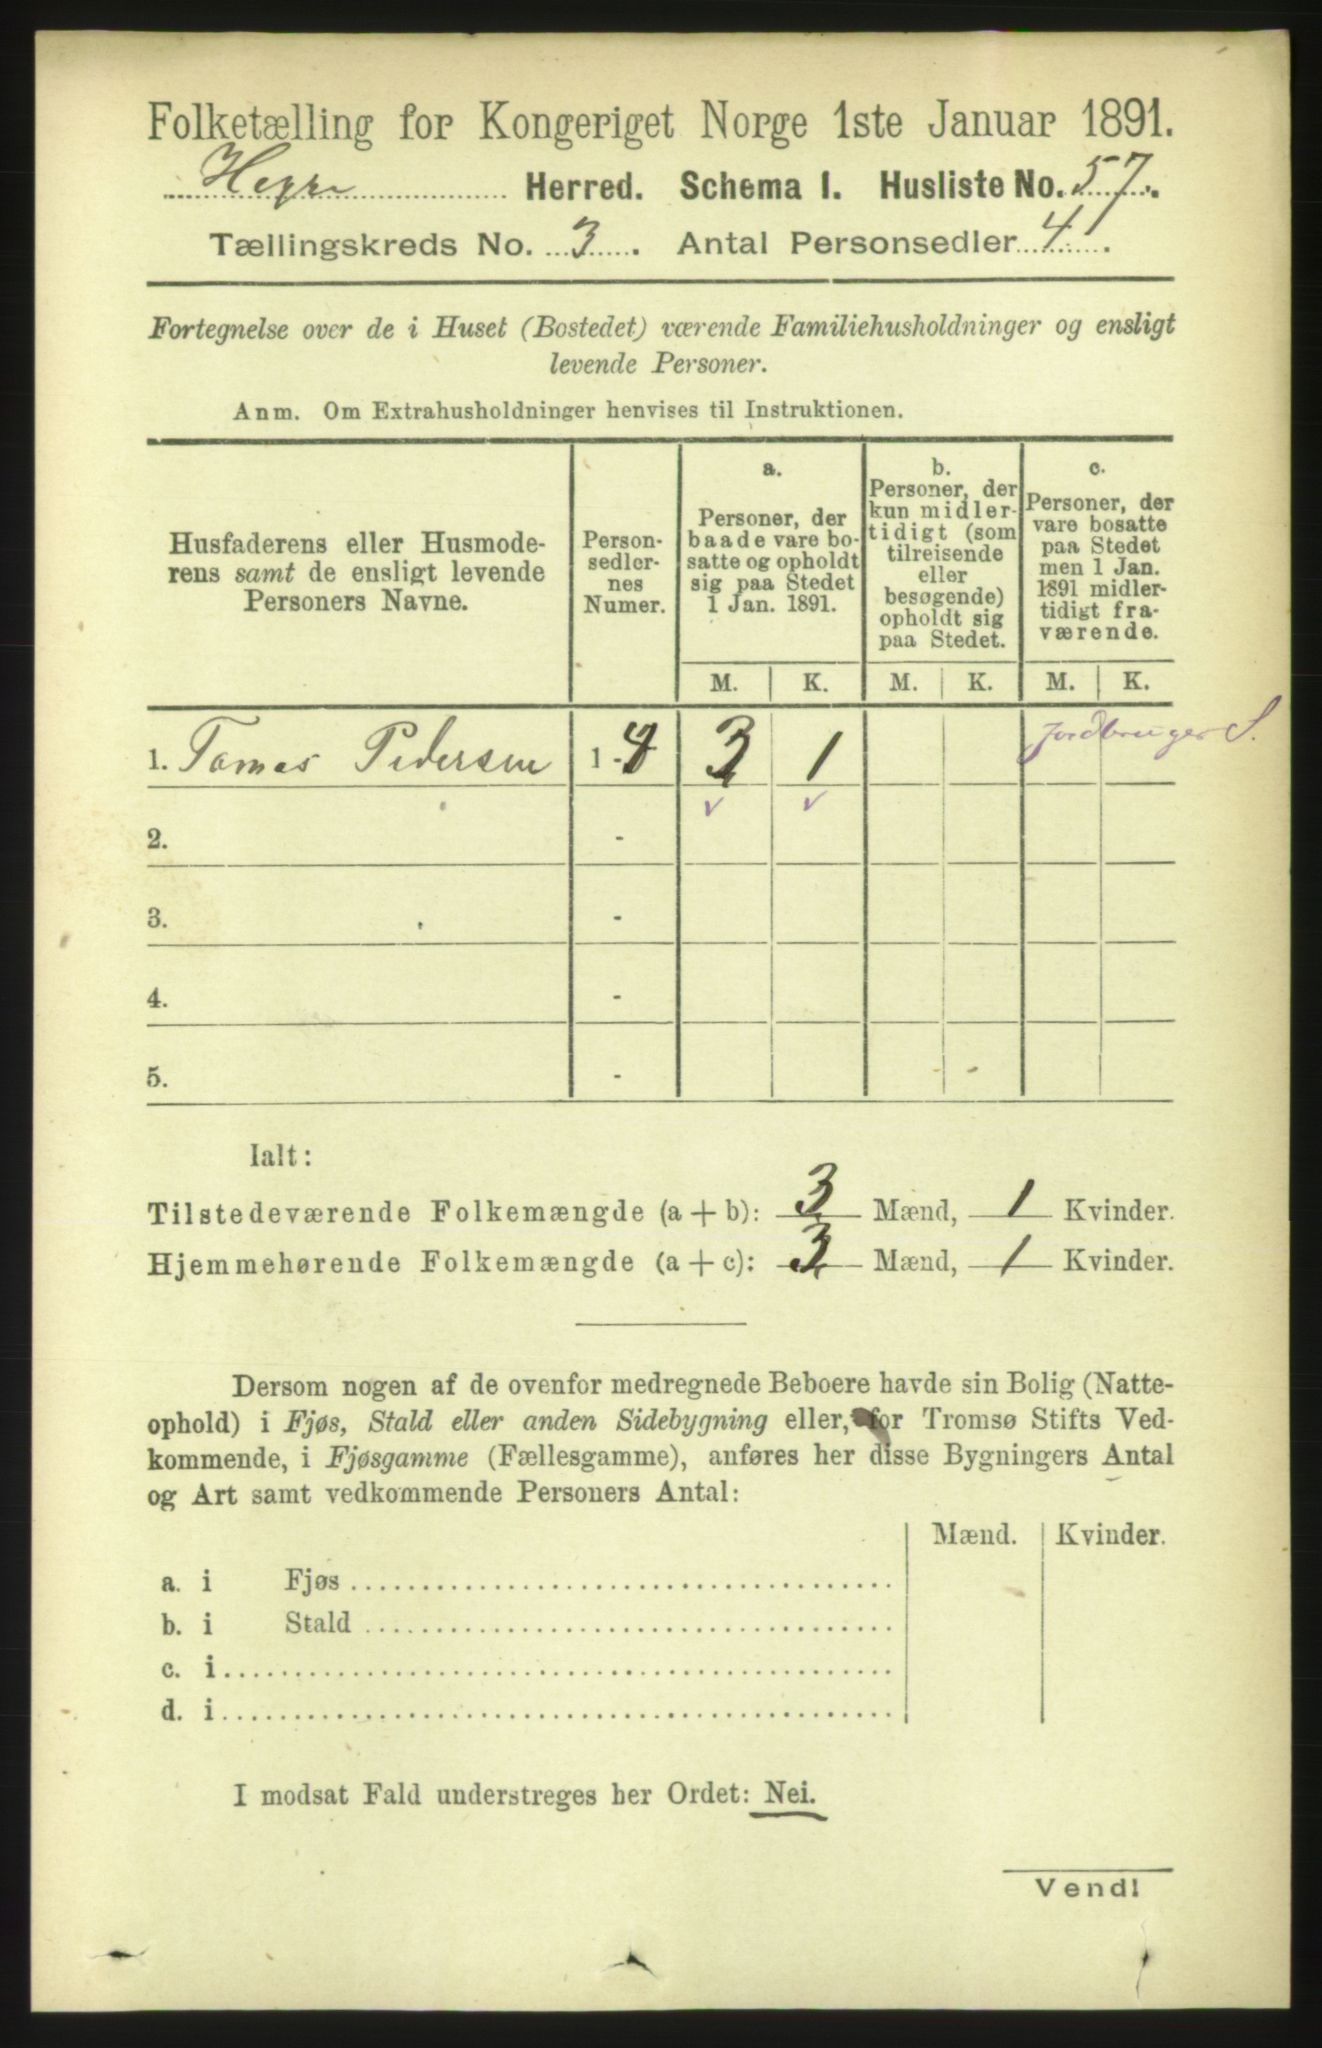 Folketælling for Kongeriget Norge 1ste Januar 1891.
Hegre Herred. Schema I. Husliste No. 57.
Tællingskreds No. 3. Antal Personsedler 4.
Fortegnelse over de i Huset (Bostedet) værende Familiehusholdninger og ensligt
levende Personer.
Anm. Om Extrahusholdninger henvises til Instruktionen.
Husfaderens eller Husmode-
rens samt de ensligt levende
Personers Navne.
Person-
sedler-
nes
Numer.
a.
Personer, der
baade vare bo-
satte og opholdt
sig paa Stedet
1 Jan. 1891.
b.
Personer, der
kun midler-
tidigt (som
tilreisende
eller
besøgende)
opholdt sig
paa Stedet.
c.
Personer, der
vare bosatte
paa Stedet
men 1 Jan.
1891 midler-
tidigt fra-
værende.
M. K. M. K. M. K.
Jordbruger S.
1. Tomas Pedersen 1-4 3 1
v v
2. -
3. -
4. -
5. -
Ialt:
Tilstedeværende Folkemængde (a + b): 3 Mænd, 1 Kvinder.
Hjemmehørende Folkemængde (a + c): 3 Mænd, 1 Kvinder.
Dersom nogen af de ovenfor medregnede Beboere havde sin Bolig (Natte-
ophold) i Fjøs, Stald eller anden Sidebygning eller, for Tromsø Stifts Ved-
kommende, i Fjøsgamme (Fællesgamme), anføres her disse Bygningers Antal
og Art samt vedkommende Personers Antal:
Mænd. Kvinder.
a. i Fjøs
b. i Stald
c. i
d. i
I modsat Fald understreges her Ordet: Nei.
Vend!